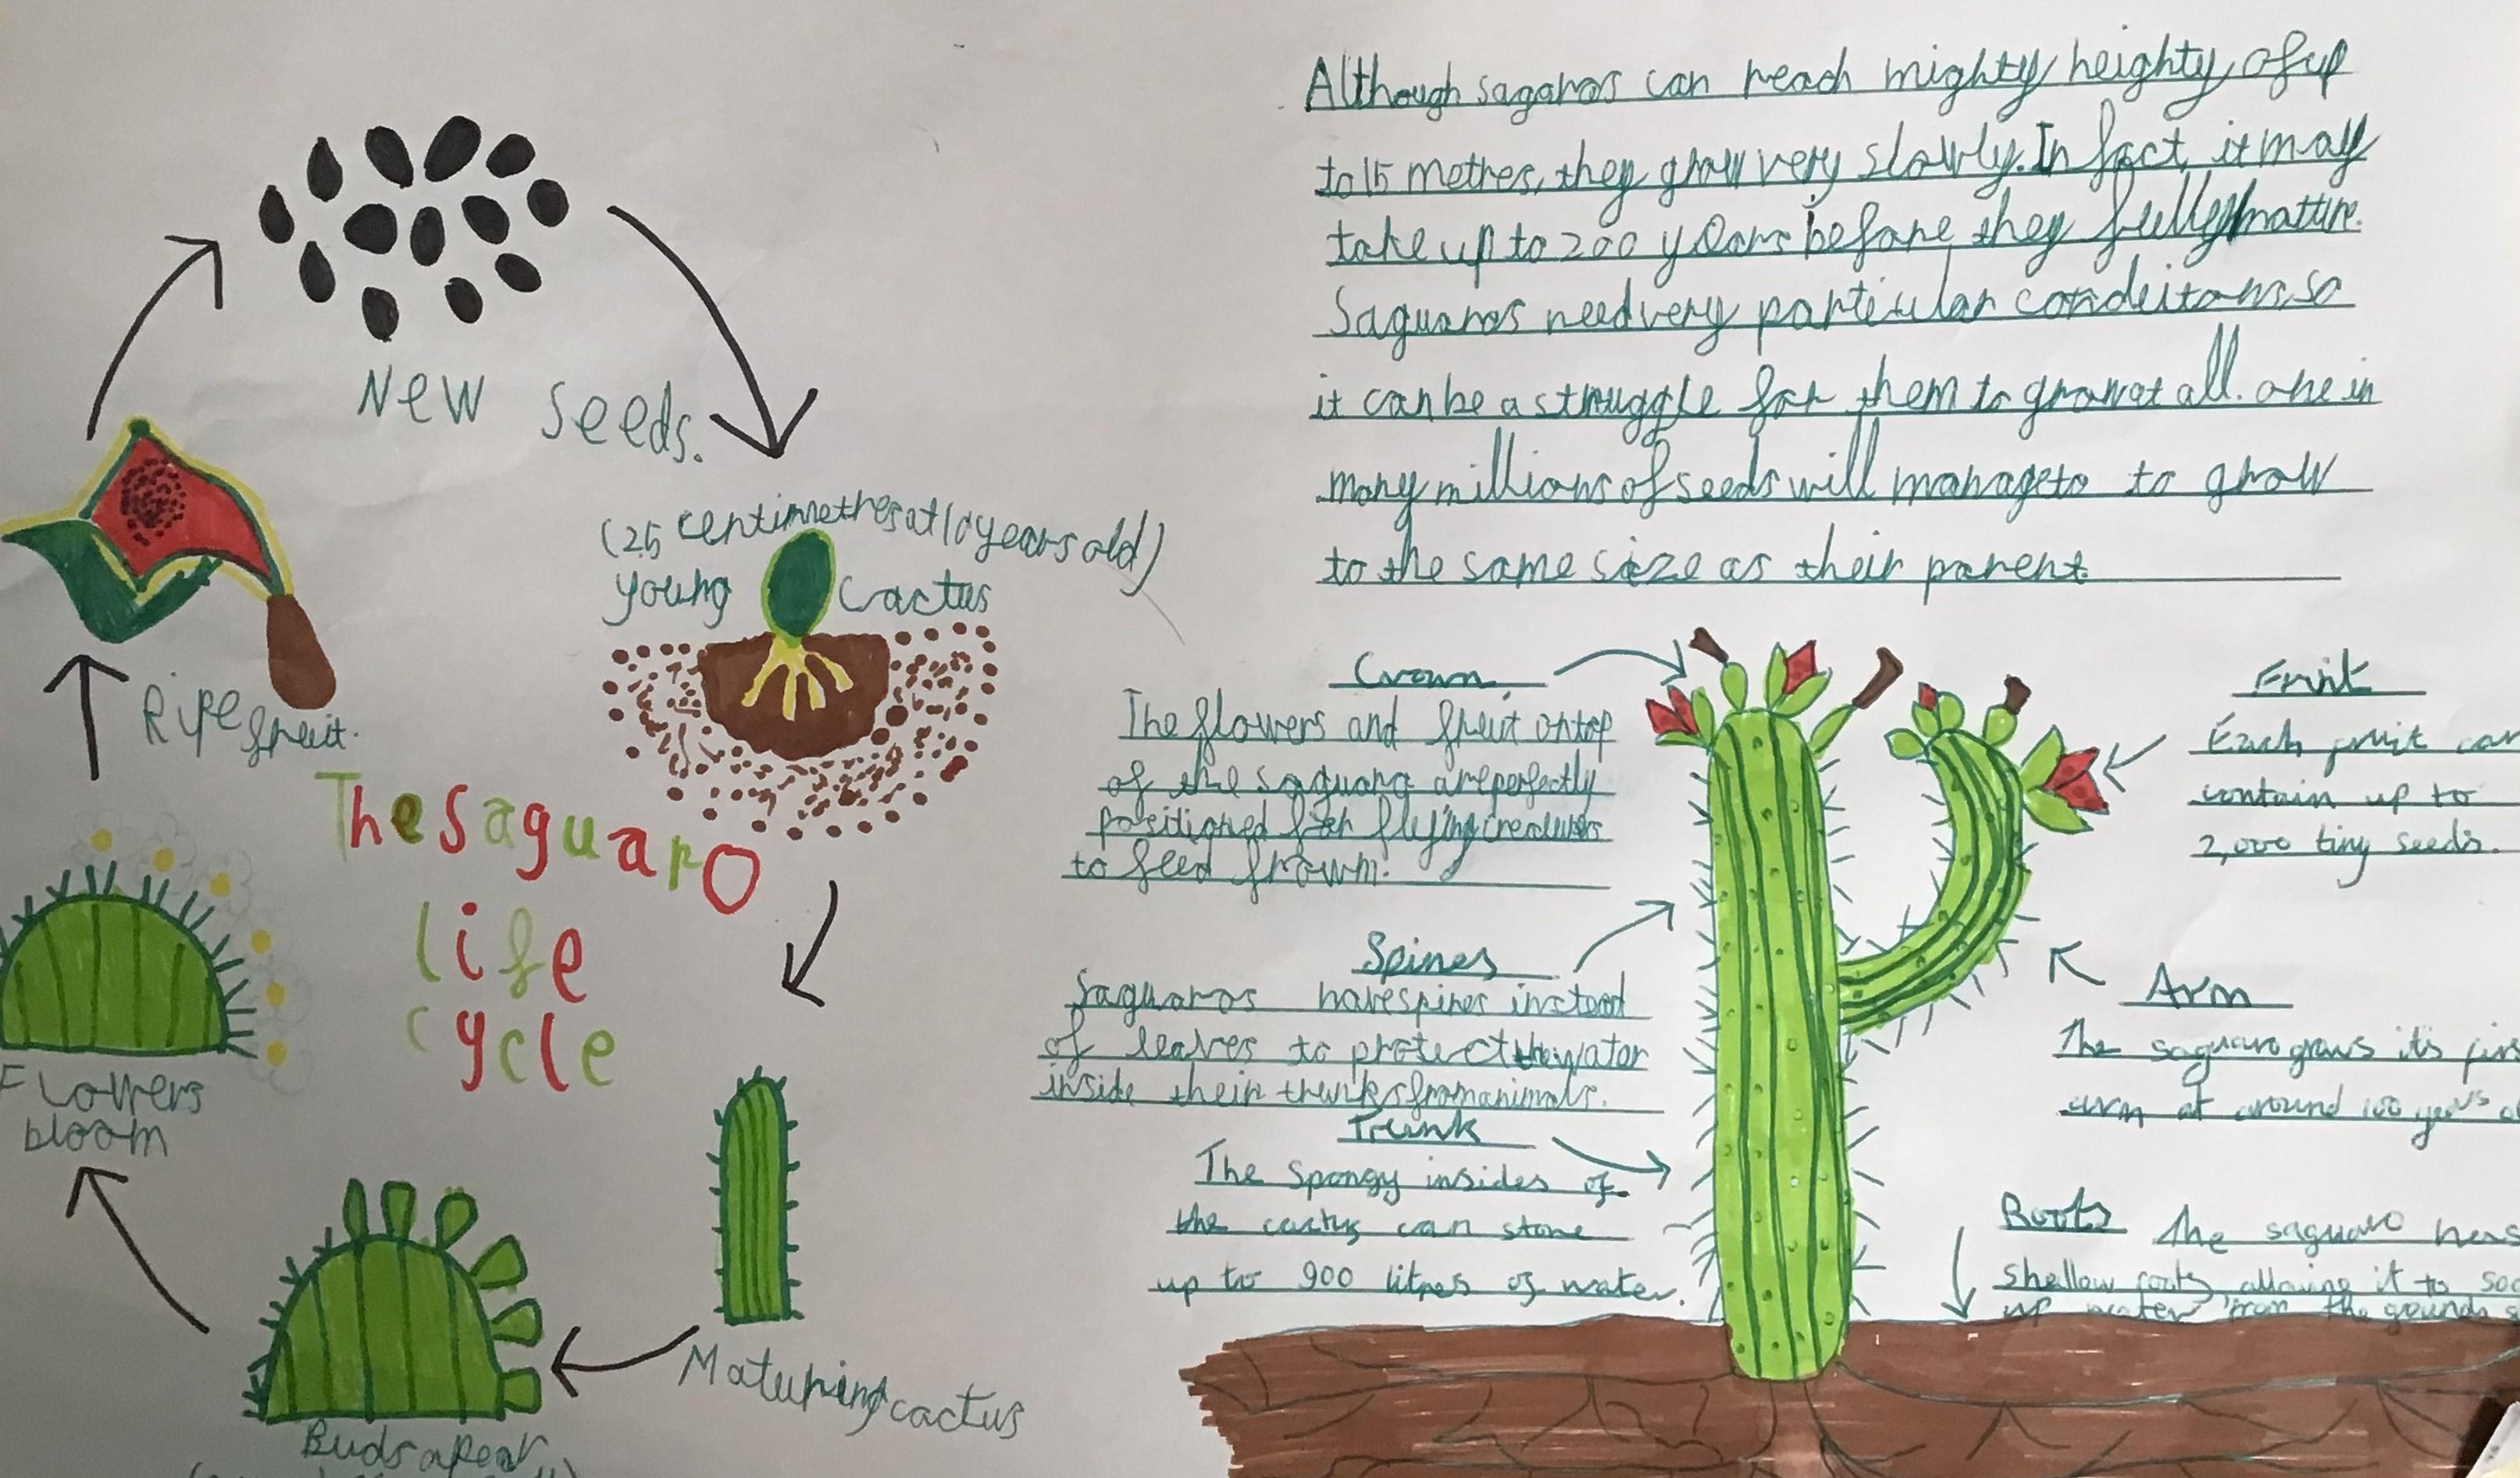 Although sagaros can reach mighty heighty, of up
to 15 metres, they grow very slowly. In fact, it may
take up to 200 years before they fully matture.
Saguaros need very particular condeitons, so
it can be a struggle for them to grow at all. one in
many millions of seeds will manageto to grow
to the same size as their parent.
New seeds.
(25 centimetres at 10 years old)
young cactus
Ripe fruit.
The saguaro
life
cycle
Flowers
bloom
Maturing cactus
Buds apear
Crown
The flowers and fruit ontop
of the saguaro are perfectly
positioned for flying creatures
to feed from.
Spines
Saguaros have spines instead
of leaves to protect the water
inside their trunks from animals.
Trunk
The spongy insides of
the cactus can store
up to 900 litres of water.
Fruit
Each fruit can
contain up to
2,000 tiny seeds.
Arm
The saguaro grows its
arm at around 100 years
Roots The saguaro has
shallow roots, allowing it to
up water from the grounds